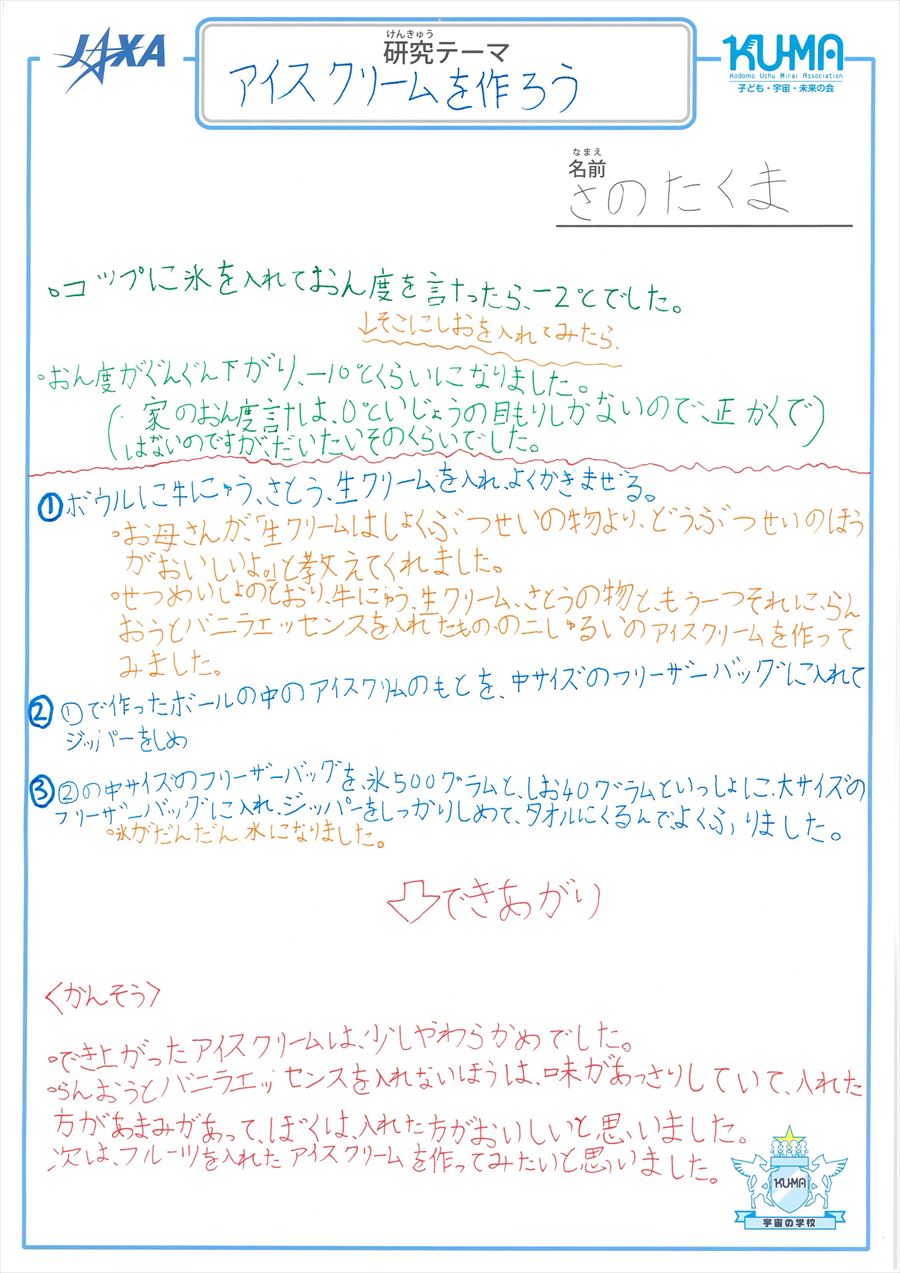 JAXA
けんきゅう
研究テーマ
アイスクリームを作ろう
KU-MA
Kodomo Uchu Mirai Association
子ども・宇宙・未来の会
なまえ
名前
さのたくま
・コップに氷を入れておん度を言ったら、-2℃でした。
↓そこにしおを入れてみたら、
・おん度がぐんぐん下がり、-10℃くらいになりました。
(・家のおん度計は、0℃いじょうの目もりしかないので、正かくで
はないのですが、だいたいそのくらいでした。)
①ボウルに牛にゅう、さとう、生クリームを入れ、よくかきまぜる。
・お母さんが、「生クリームはしょくぶつせいの物より、どうぶつせいのほう
がおいしいよ。」と教えてくれました。
・せつめいしょのとおり、牛にゅう、生クリーム、さとうの物と、もう一つそれに、らん
おうとバニラエッセンスを入れたもの、の二しゅるいのアイスクリームを作って
みました。
②①で作ったボールの中のアイスクリムのもとを、中サイズのフリーザーバッグに入れて
ジッパーをしめ
③②の中サイズのフリーザーバッグを、氷500グラムと、しお40グラムといっしょに、大サイズの
フリーザーバッグに入れ、ジッパーをしっかりしめて、タオルにくるんで、よくふりました。
・氷がだんだん、水になりました。
⇩できあがり
〈かんそう〉
・でき上がったアイスクリームは、少しやわらかめでした。
・らんおうとバニラエッセンスを入れないほうは、味があっさりしていて、入れた
方があまみがあって、ぼくは、入れた方がおいしいと思いました。
次は、フルーツを入れたアイスクリームを作ってみたいと思いました。
KU-MA
宇宙の学校